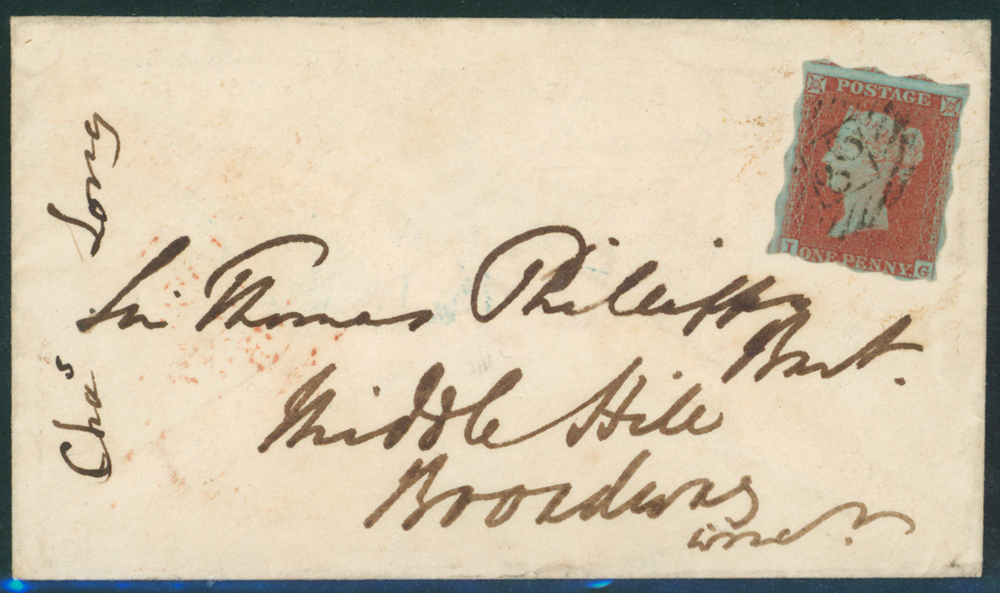 Chas Long
POSTAGE
ONE PENNY
I G
Sir Thomas Phillipps
Bart.
Middle Hill
Broadway